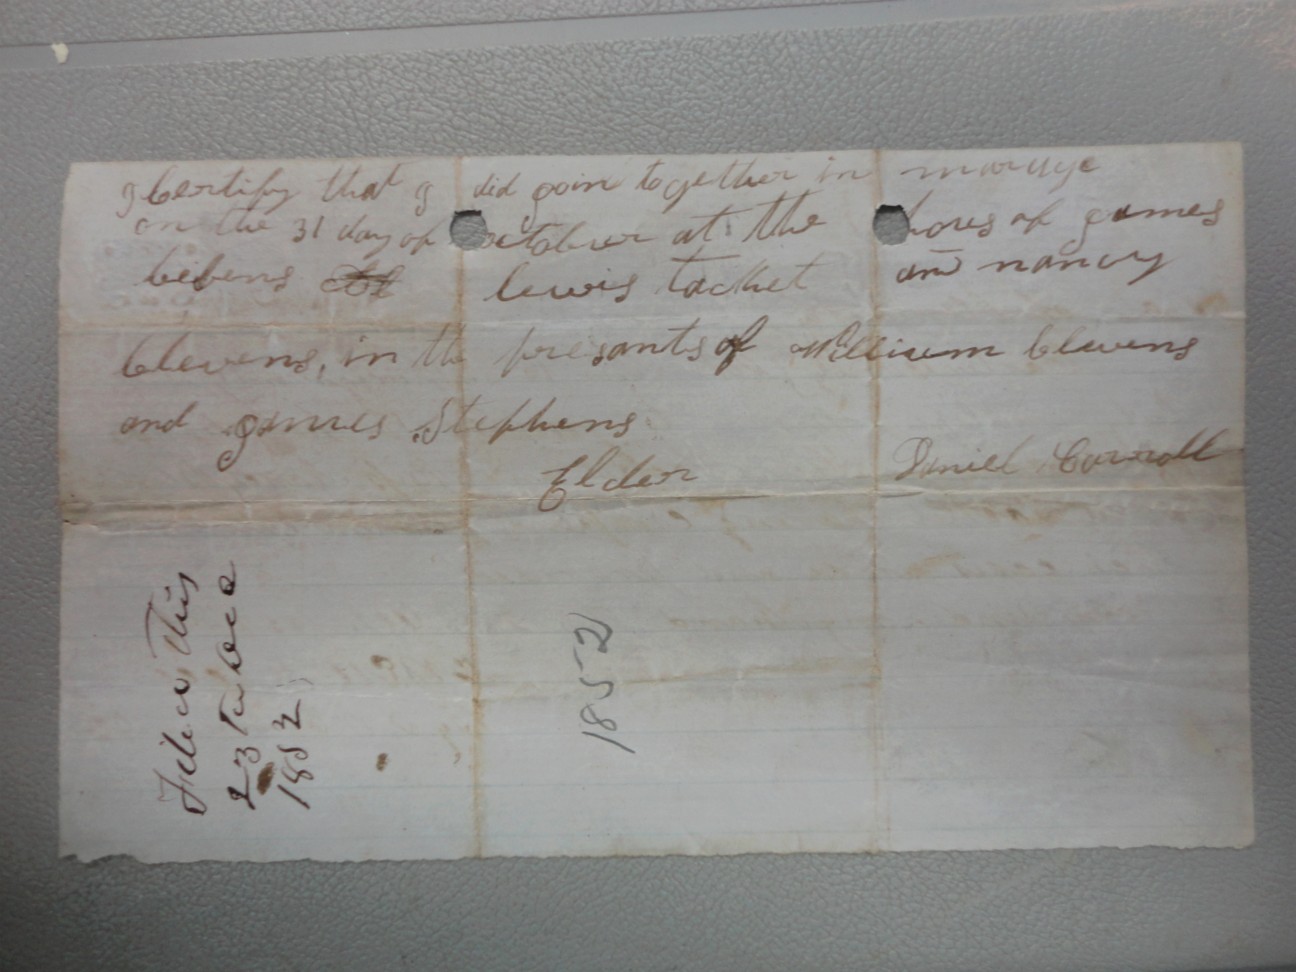 I Certify that I did goin together in marage
on the 31 day of october at the hous of games
blevens lewis tacket and nancy
blevens, in the presants of William blevens
and games Stephens
Elder Daniel Carroll
Filed This
23
1852
1852